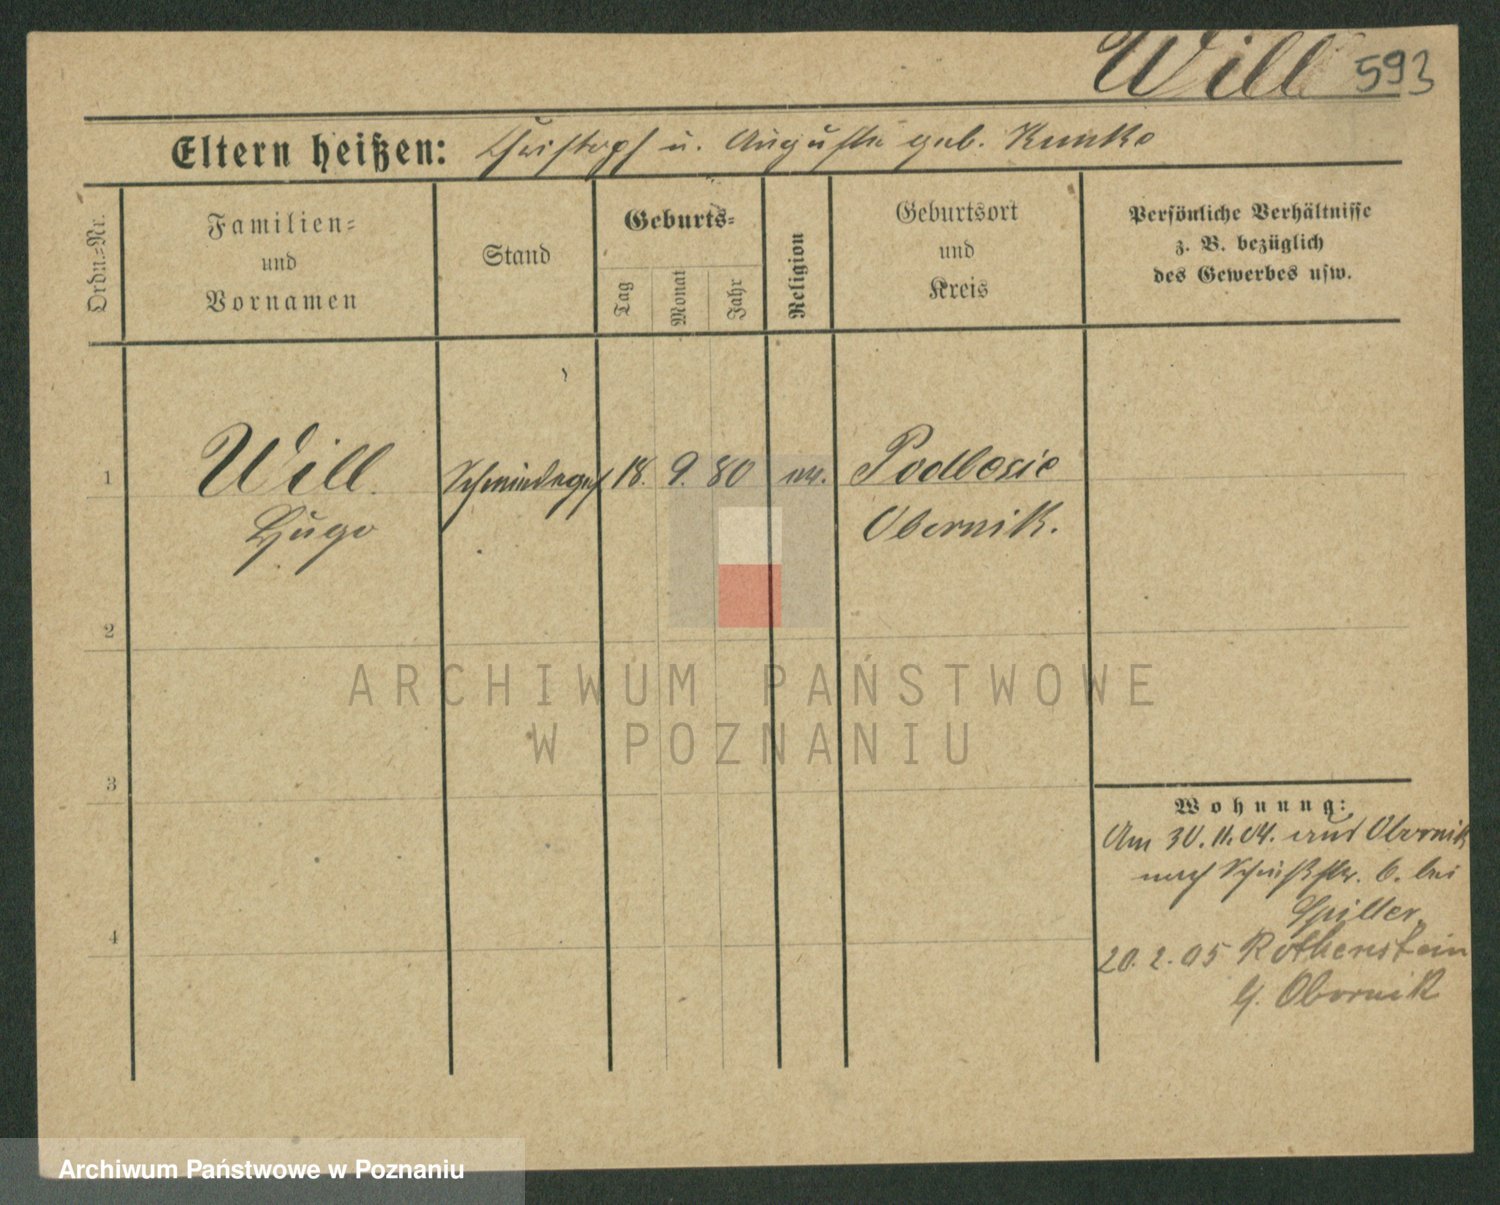 Will 593
Eltern heißen: Christoph u. Auguste geb. Kunke
Ordn.=Nr.
Familien=
und
Vornamen
Stand
Geburts=
Tag
Monat
Jahr
Religion
Geburtsort
und
Kreis
Persönliche Verhältnisse
z. B. bezüglich
des Gewerbes usw.
1 Will Schmiedeges 18. 9. 80 ev. Podlesie
Hugo Obornik.
2
3
4
Wohnung:
Am 30.11.04. aus Obornik
nach Schußstr. 6. bei
Spiller,
20.2.05 Rothenstein
Obornik
ARCHIWUM PAŃSTWOWE
W POZNANIU
Archiwum Państwowe w Poznaniu